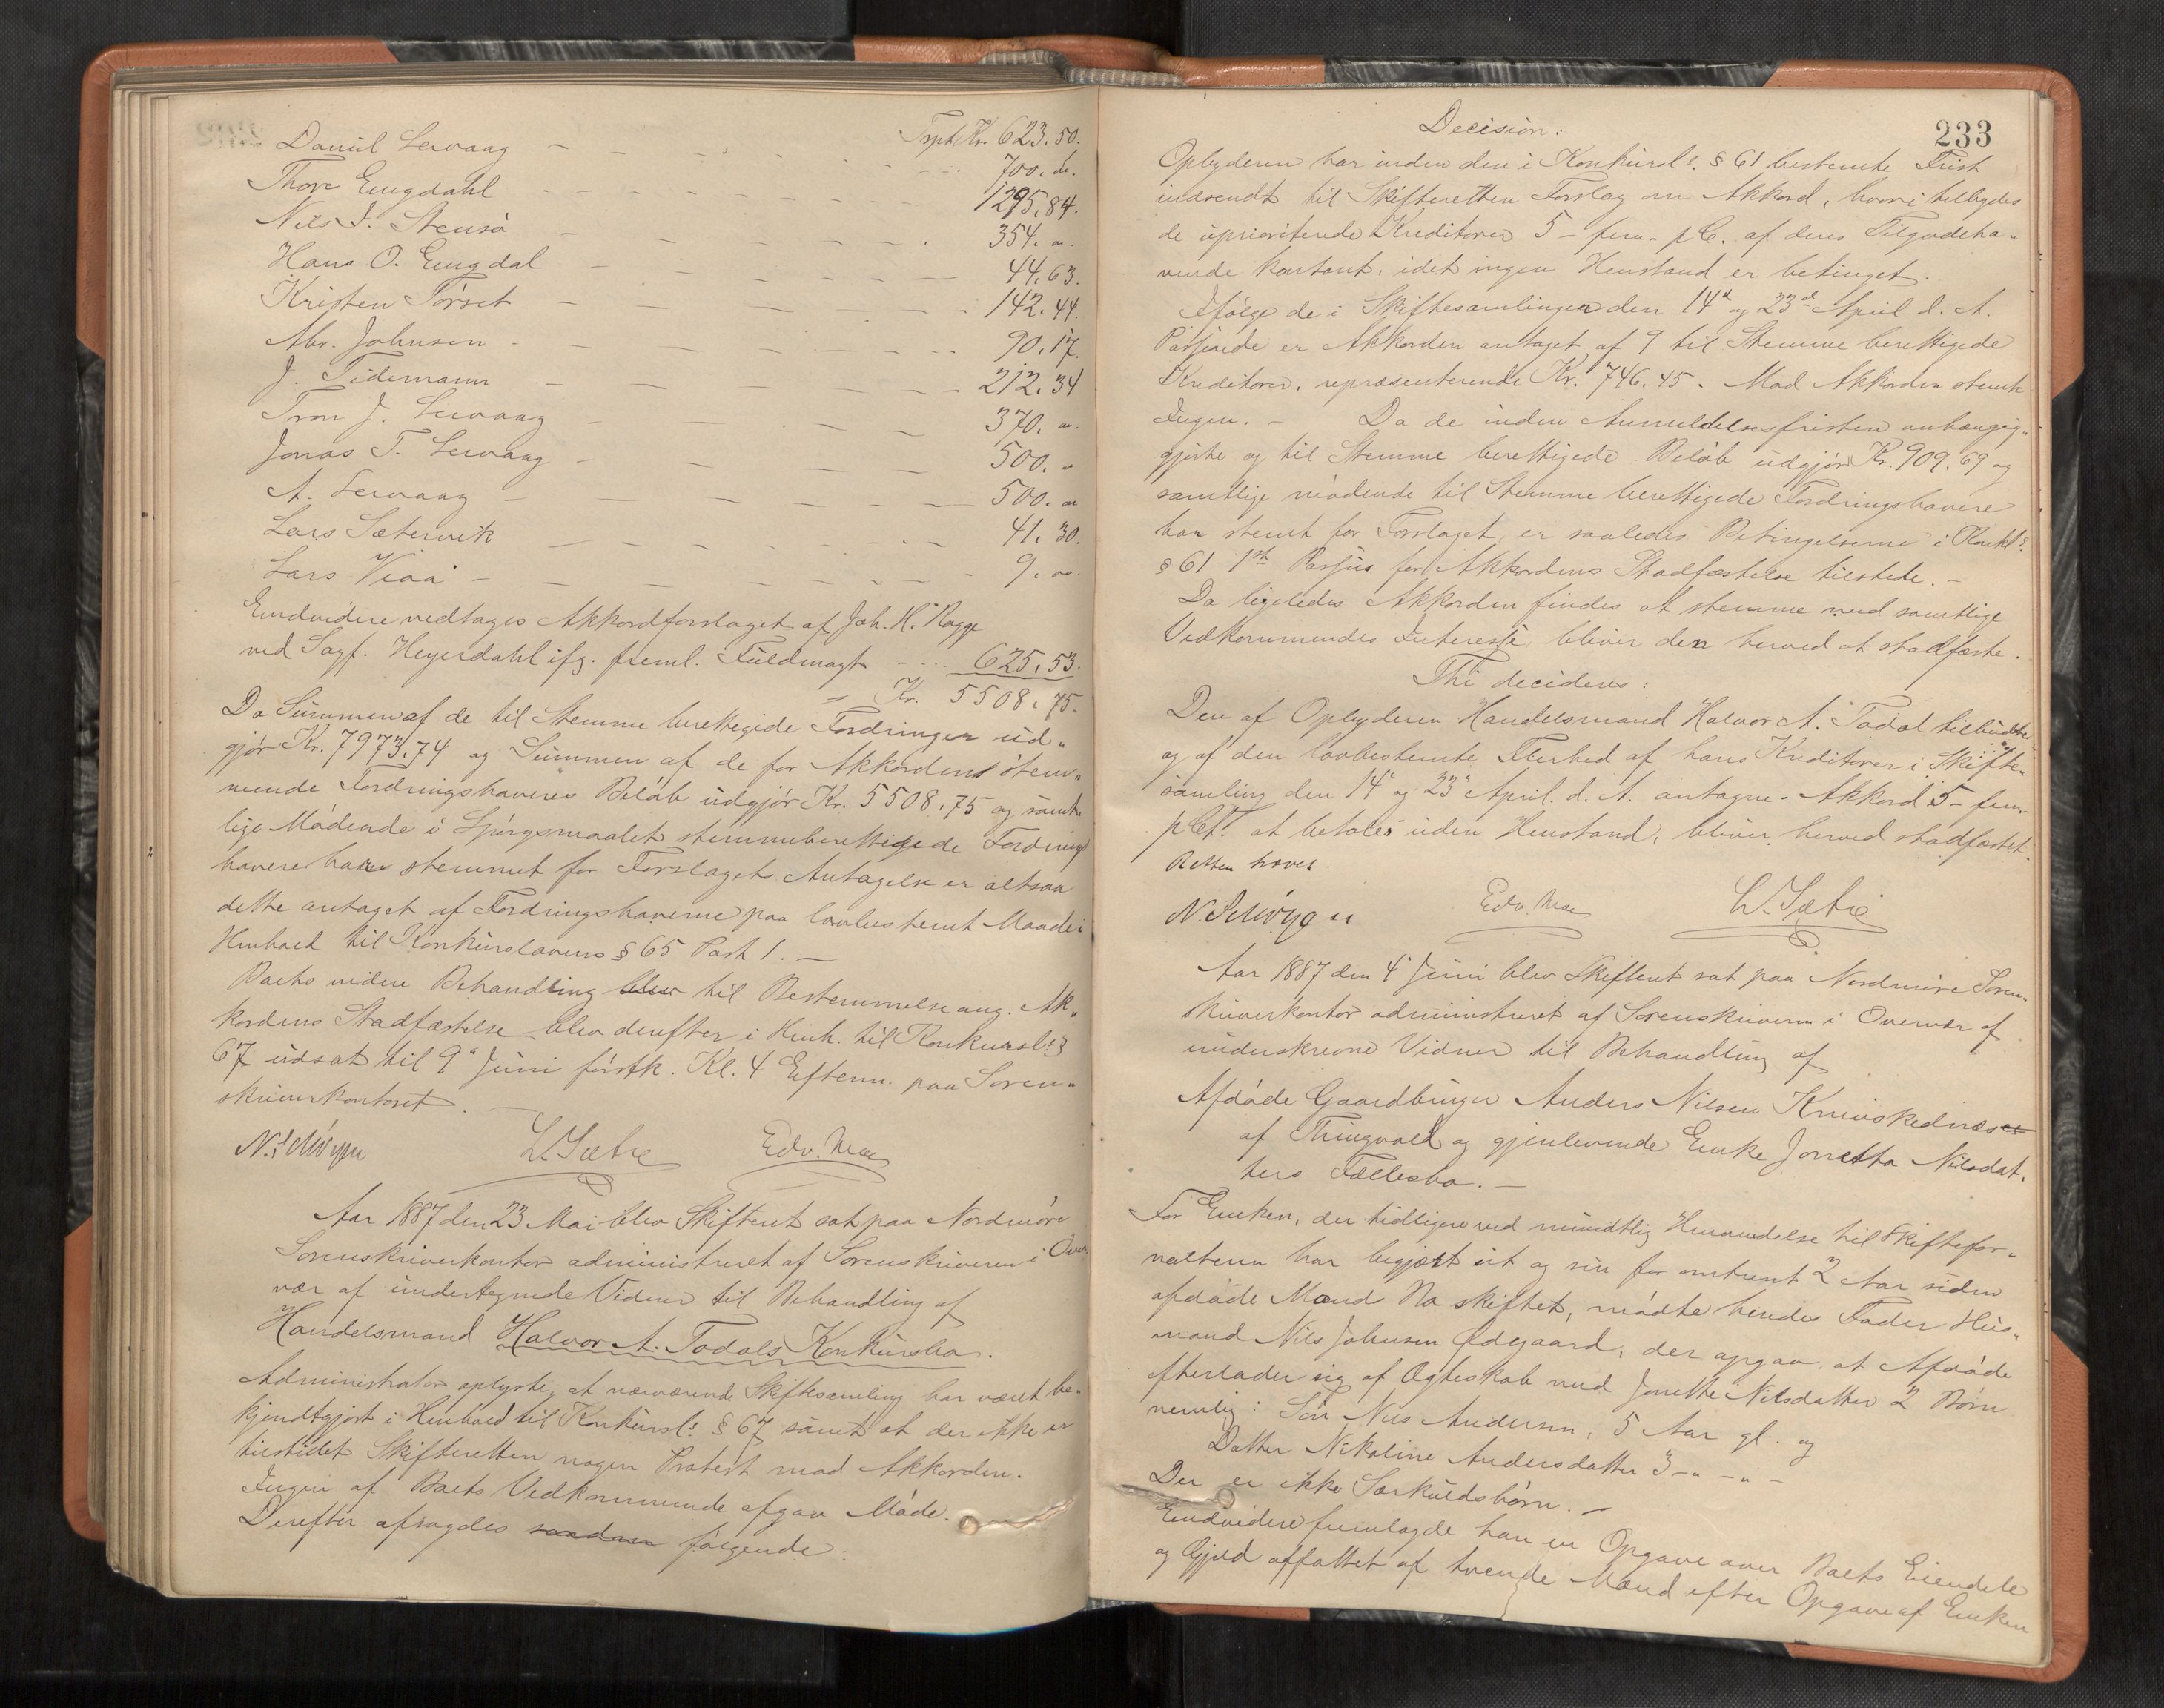 Daniel Lervaag — — — Trspt Kr. 623.50.
Thore Engdahl — — — 700. „
Nils J. Stensø — — — 1295.84.
Hans O. Engdal — — — 354. „
Kristen Tørset — — — 44.63.
Abr. Johnsen — — — 142.44.
J. Tidemann — — — 90.17.
Tron J. Lervaag — — — 212.34
Jonas T. Lervaag — — — 370. „
A. Lervaag — — — 500. „
Lars Sætervik — — — 500. „
Lars Viaa — — — 41.30.
9. „
Endvidere vedtages Akkordforslaget af Joh. H. Ragge
ved Sagf. Heyerdahl ifg. freml. Fuldmagt — 625.53.
Kr. 5508.75.
Da Summen af de til Stemme berettigede Fordringer ud„
gjør Kr. 7973.74 og Summen af de for Akkorden stem„
mende Fordringshaveres Beløb udgjør Kr. 5508.75 og samt
lige Mødende i Spørgsmaalet stemmeberettigede Fordrings
havere have stemmet for Forslagets Antagelse er altsaa
dette antaget af Fordringshaverne paa lovbestemt Maade i
Henhold til Konkurslovens § 65 Post 1. —
Boets videre Behandling blev til Bestemmelse ang. Ak„
kordens Stadfæstelse blev derefter i Henh. til Konkursl. §
67 udsat til 9 Juni førstk. Kl. 4 Efterm. paa Soren„
skriverkontoret.
L. Sætre Edv. Moe
Aar 1887 den 23 Mai blev Skifteret sat paa Nordmøre
Sorenskriverkontor administreret af Sorenskriveren i Over
vær af undertegnede Vidner til Behandling af
Handelsmand Halvor A. Todals Konkursbo.
Administrator oplyste, at nærværende Skiftesamling har været be„
kjendtgjort i Henhold til Konkursl. § 67 samt at der ikke er
tilstillet Skifteretten nogen Protest mod Akkorden.
Ingen af Boets Vedkommende afgav Møde.
Derefter afsagdes saadan følgende:
233
Decision:
Opbyderen har inden den i Konkursl. § 61 bestemte Frist
indsendt til Skifteretten Forslag om Akkord, hvori tilbydes
de uprioriterede Kreditorer 5 - fem - pC. af deres Tilgodeha„
vende kontant, idet ingen Henstand er betinget.
Ifølge de i Skiftesamlingen den 14d og 23d April d. A.
Passerede er Akkorden antaget af 9 til Stemme berettigede
Kreditorer, repræsenterende Kr. 746.45. Mod Akkorden stemte
Ingen. — Da de inden Anmeldelsesfristen anhængig„
gjorte og til Stemme berettigede Beløb udgjør Kr. 909.69 og
samtlige mødende til Stemme berettigede Fordringshavere
har stemt for Forslaget, er saaledes Betingelserne i Konkl.
§ 61 1st Passus for Akkordens Stadfæstelse tilstede. —
Da ligeledes Akkorden findes at stemme med samtlige
Vedkommendes Interesse, bliver den herved at stadfæste.
Thi decideres:
Den af Opbyderen Handelsmand Halvor A. Todal tilbudte
og af den lovbestemte Flerhed af hans Kreditorer i Skifte„
samling den 14 og 23 April d. A. antagne Akkord 5 - fem
pCt. at betales uden Henstand, bliver herved stadfæstet.
Retten hævet.
Edv. Moe L. Sætre
Aar 1887 den 4 Juni blev Skifteret sat paa Nordmøre Soren„
skriverkontor administreret af Sorenskriveren i Overvær af
underskrevne Vidner til Behandling af
Afdøde Gaardbruger Anders Nilsen Knivskednes
af Thingvold og gjenlevende Enke Jonetta Nilsdat„
ters Fællesbo. —
For Enken, der tidligere ved mundtlig Henvendelse til Skiftefor„
valteren har begjært sit og sin for omtrent 2 Aar siden
afdøde Mand Bo skiftet, mødte hendes Fader Hus„
mand Nils Johnsen Ødegaard, der opgav, at Afdøde
efterlader sig af Ægteskab med Jonette Nilsdatter 2 Børn
nemlig: Søn Nils Andersen, 5 Aar gl. og
Datter Nikoline Andersdatter 3 — „ — „ —
Der er ikke Særkuldsbørn. —
Endvidere fremlagde han en Opgave over Boets Eiendele
og Gjæld affattet af tvende Mænd efter Opgave af Enken